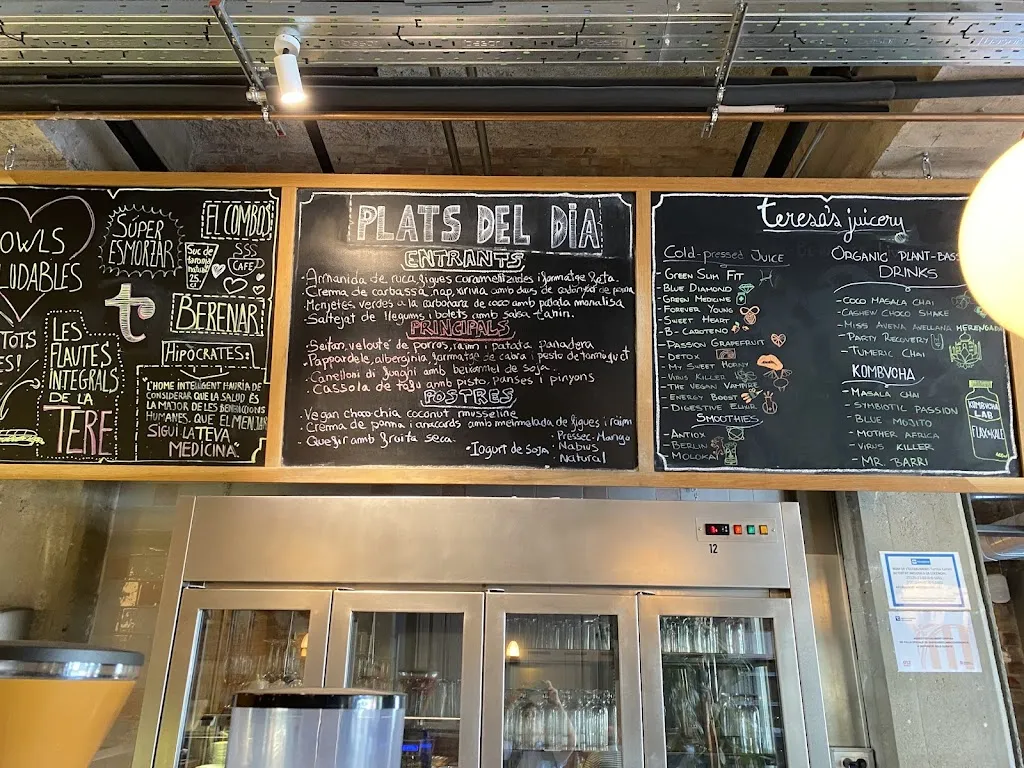 OWLS
LUDABLES
TOTS
ES!
SÚPER
ESMORZAR
EL COMBOS
Suc de
taronja
natural
25
cl
CAFÈ
t
BERENAR
LES
FLAUTES
INTEGRALS
DE LA
TERE
HIPÒCRATES:
L'HOME INTEL·LIGENT HAURIA DE
CONSIDERAR QUE LA SALUD ÉS
LA MAJOR DE LES BENEDICCIONS
HUMANES. QUE EL MENJAR
SIGUI LA TEVA
MEDICINA.
PLATS DEL DIA
ENTRANTS
-Amanida de ruca, figues caramelitzades i formatge feta.
-Crema de carbassa, nap, xirivia amb daus de
-Monetes verdes a la carbonara de coco amb patata monalisa.
-Saltejat de llegums i bolets amb salsa tanin.
PRINCIPALS
-Seitan, velouté de porros, raïm i patata panadera
-Pappardele, albergínia, formatge de cabra i pesto de tomàquet
-Canelloni di funghi amb beixamel de soja.
-Cassola de tofu amb pisto, panses i pinyons
POSTRES
Vegan choco-chia coconut mousseline
-Crema de poma i anacards amb melmelada de figues i raïm
-Quefir amb fruita seca.
-Iogurt de soja
· Pressec-Mango
· Nabius
· Natural
teresa's juicery
Cold-pressed Juice
- GREEN SLIM FIT
- BLUE DIAMOND
- GREEN MEDICINE
- FOREVER YOUNG
- SWEET HEART
- B-CAROTENO
- PASSION GRAPEFRUIT
- DETOX
- MY SWEET HONEY
- VIRUS KILLER
- THE VEGAN VAMPIRE
- ENERGY BOOST
- DIGESTIVE ELIXIR
SMOOTHIES
- ANTIOX
- BERLIN
- MOLOKAI
ORGANIC PLANT-BAS
DRINKS
- COCO MASALA CHAI
- CASHEW CHOCO SHAKE
- MISS AVENA AVELLANA MERENGADA
- PARTY RECOVERY
- TUMERIC CHAI
KOMBUCHA
- MASALA CHAI
- SYMBIOTIC PASSION
- BLUE MOJITO
- MOTHER AFRICA
- VIRUS KILLER
- MR. BARRI
KOMBUCHA
LAB
12